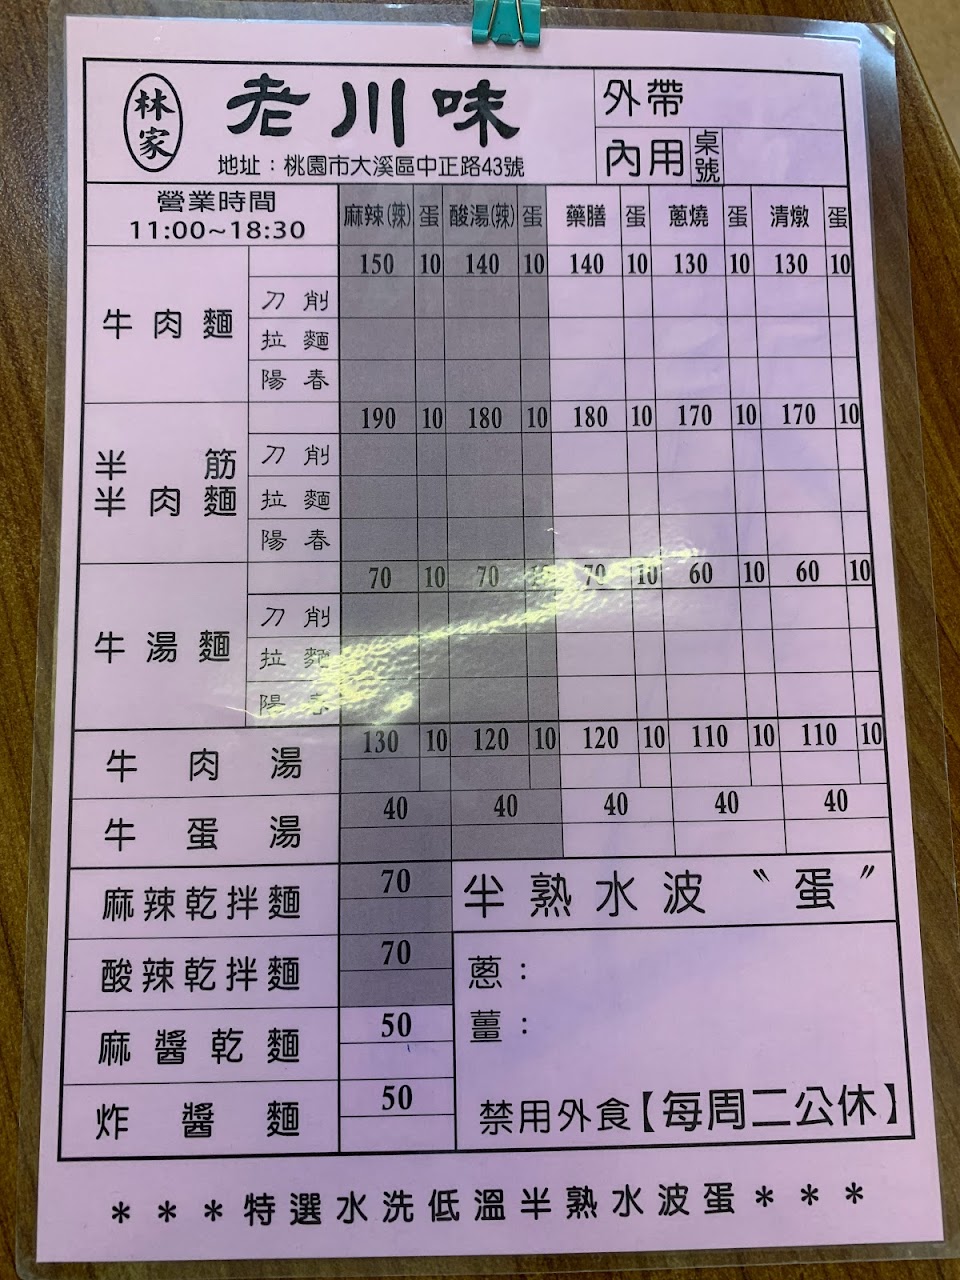 林家
老川味
地址：桃園市大溪區中正路43號
外帶
內用 桌號
營業時間
11:00~18:30
麻辣(辣) 蛋 酸湯(辣) 蛋 藥膳 蛋 蔥燒 蛋 清燉 蛋
150 10 140 10 140 10 130 10 130 10
牛肉麵
刀削
拉麵
陽春
190 10 180 10 180 10 170 10 170 10
半筋
半肉麵
刀削
拉麵
陽春
70 10 70 10 70 10 60 10 60 10
牛湯麵
刀削
拉麵
陽春
130 10 120 10 120 10 110 10 110 10
牛肉湯
40 40 40 40 40
牛蛋湯
麻辣乾拌麵 70
半熟水波〝蛋〞
酸辣乾拌麵 70
蔥：
薑：
麻醬乾麵 50
炸醬麵 50
禁用外食【每周二公休】
＊＊＊特選水洗低溫半熟水波蛋＊＊＊